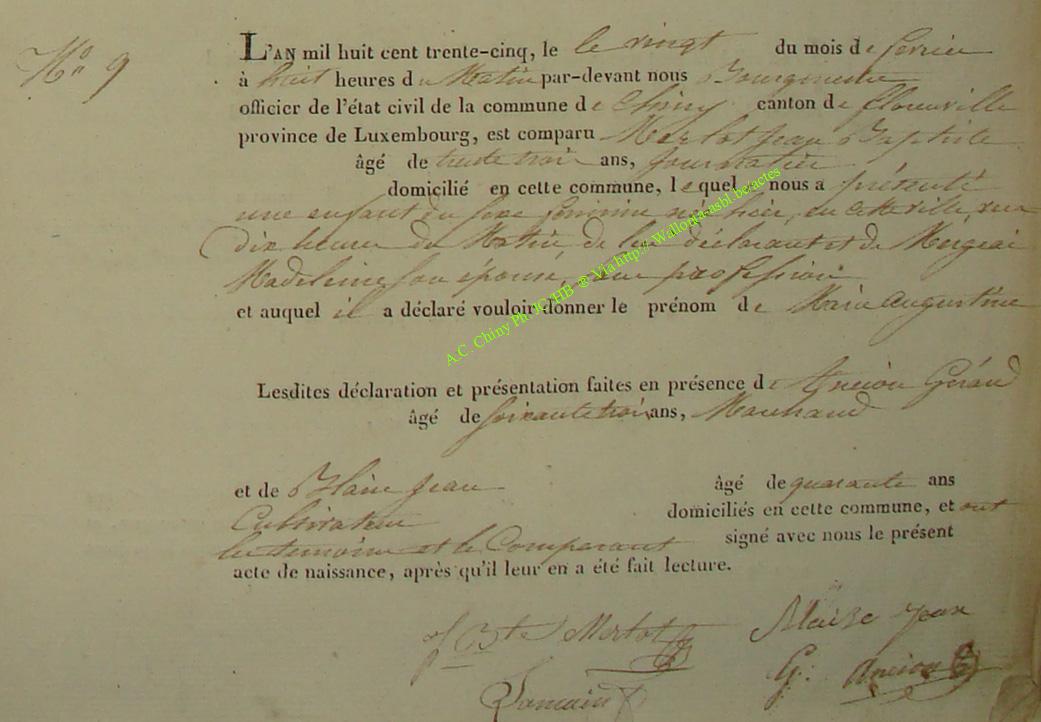 No 9
L'AN mil huit cent trente-cinq, le le vingt du mois de fevrier
à huit heures du Matin par-devant nous Bourgmestre
officier de l'état civil de la commune de Chiny canton de florenville
province de Luxembourg, est comparu Merlot Jean Baptiste
âgé de trente trois ans, journalier
domicilié en cette commune, lequel nous a présenté
une enfant du sexe feminin né hier, en cette ville, vers
dix heures du Matin de lui déclarant et de
Madeleine son épouse, sans profession
et auquel il a déclaré vouloir donner le prénom de Marie Augustine
A.C. Chiny Ph. JC HB @ Via http:\\ Wallonia-asbl.be/actes
Lesdites déclaration et présentation faites en présence de Ancion Gérard
âgé de soixante trois ans, Marchand
et de Blaise Jean âgé de quarante ans
Cultivateur domiciliés en cette commune, et ont
les temoins et le Comparant signé avec nous le présent
acte de naissance, après qu'il leur en a été fait lecture.
J Bte Merlot Blaise Jean
G: Ancion